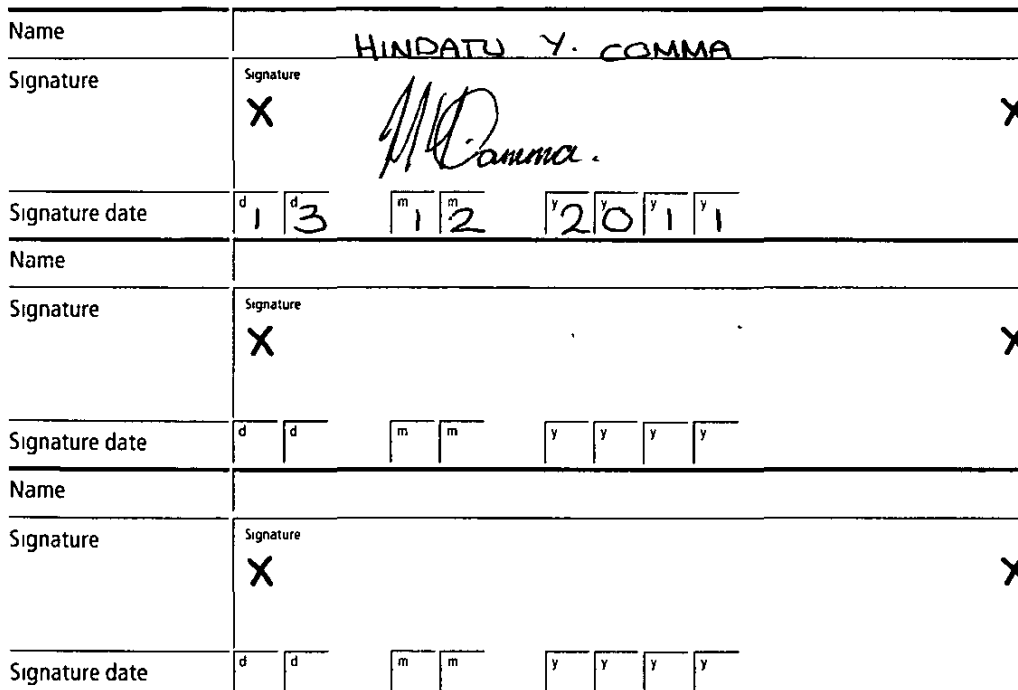 Name HINDATU Y. COMMA
Signature Signature
X X
Signature date d 1 d 3 m 1 m 2 y 2 y 0 y 1 y 1
Name
Signature Signature
X X
Signature date d d m m y y y y
Name
Signature Signature
X X
Signature date d d m m y y y y